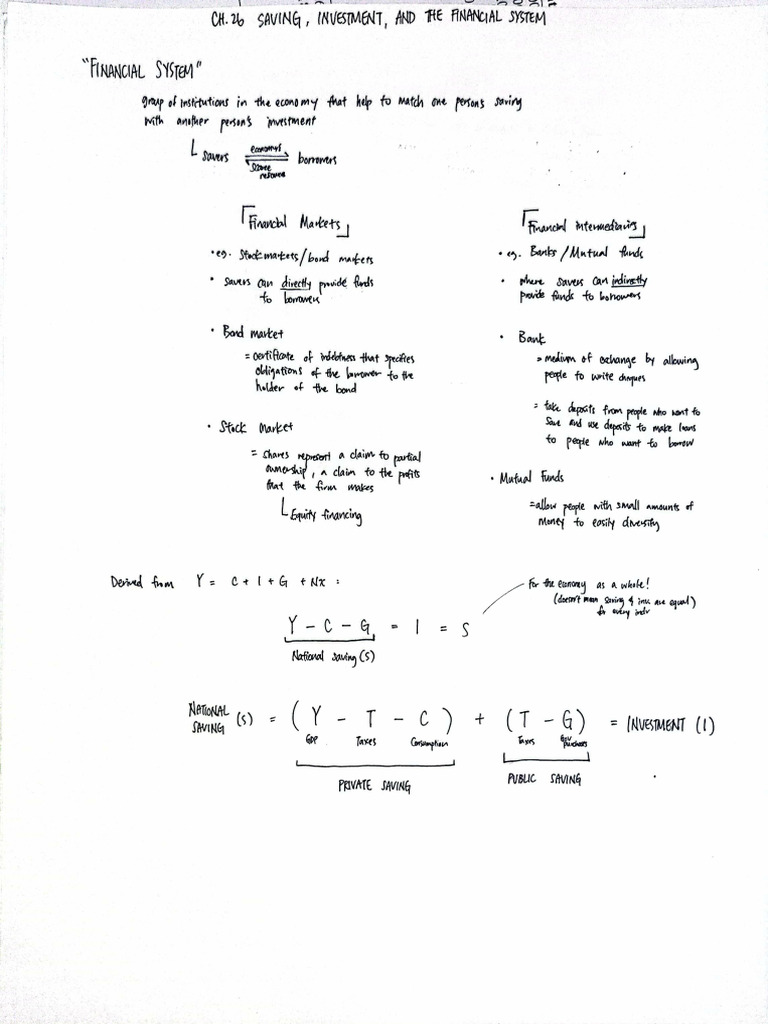 CH. 26 SAVING, INVESTMENT, AND THE FINANCIAL SYSTEM
"FINANCIAL SYSTEM"
group of institutions in the economy that help to match one person's saving
with another person's investment
savers economy's scarce resource borrowers
Financial Markets
• eg. Stock markets / bond markets
• savers can directly provide funds
to borrowers
• Bond market
= certificate of indebtness that specifies
obligations of the borrower to the
holder of the bond
• Stock market
= shares represent a claim to partial
ownership, a claim to the profits
that the firm makes
Equity financing
Financial intermediaries
• eg. Banks / Mutual funds
• where savers can indirectly
provide funds to borrowers
• Bank
= medium of exchange by allowing
people to write cheques
= take deposits from people who want to
save and use deposits to make loans
to people who want to borrow
• Mutual Funds
= allow people with small amounts of
money to easily diversify
Derived from Y = C + I + G + NX :
For the economy as a whole!
(doesn't mean saving & inv. are equal)
for every indv
Y - C - G = I = S
National saving (S)
NATIONAL SAVING (S) = (Y - T - C) + (T - G) = INVESTMENT (I)
GDP Taxes Consumption Taxes Gov purchases
PRIVATE SAVING PUBLIC SAVING